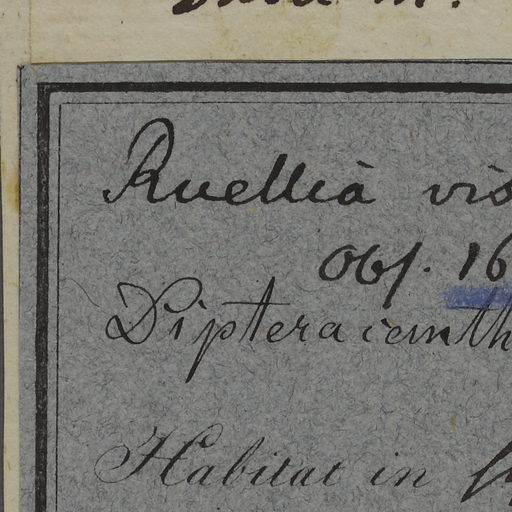 Ruellia vis
Obs. 16
Dipteracanth
Habitat in